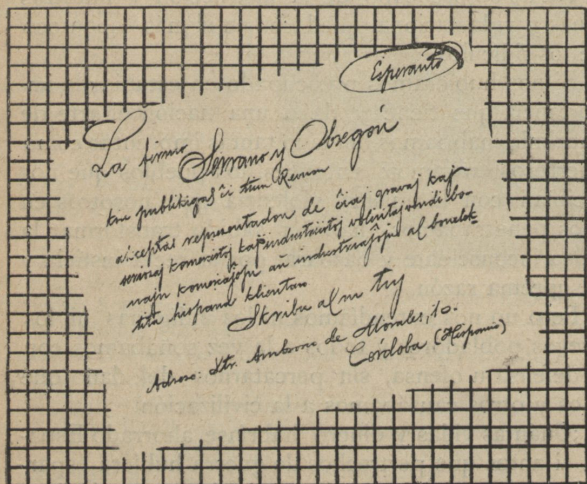 Esperanto
La firmo Serrano y Obregón
kiu publikigas ĉi tiun Revuon
akceptas reprezentadon de ĉiaj gravaj kaj
seriozaj komercistoj kaj industriistoj volintaj vendi bo-
najn komercaĵojn aŭ industriaĵojn al bonelek-
tita hispana klientaro
Skribu al ni tuj
Adreso: Str. Ambrosio de Morales, 10.
Córdoba (Hispanio)